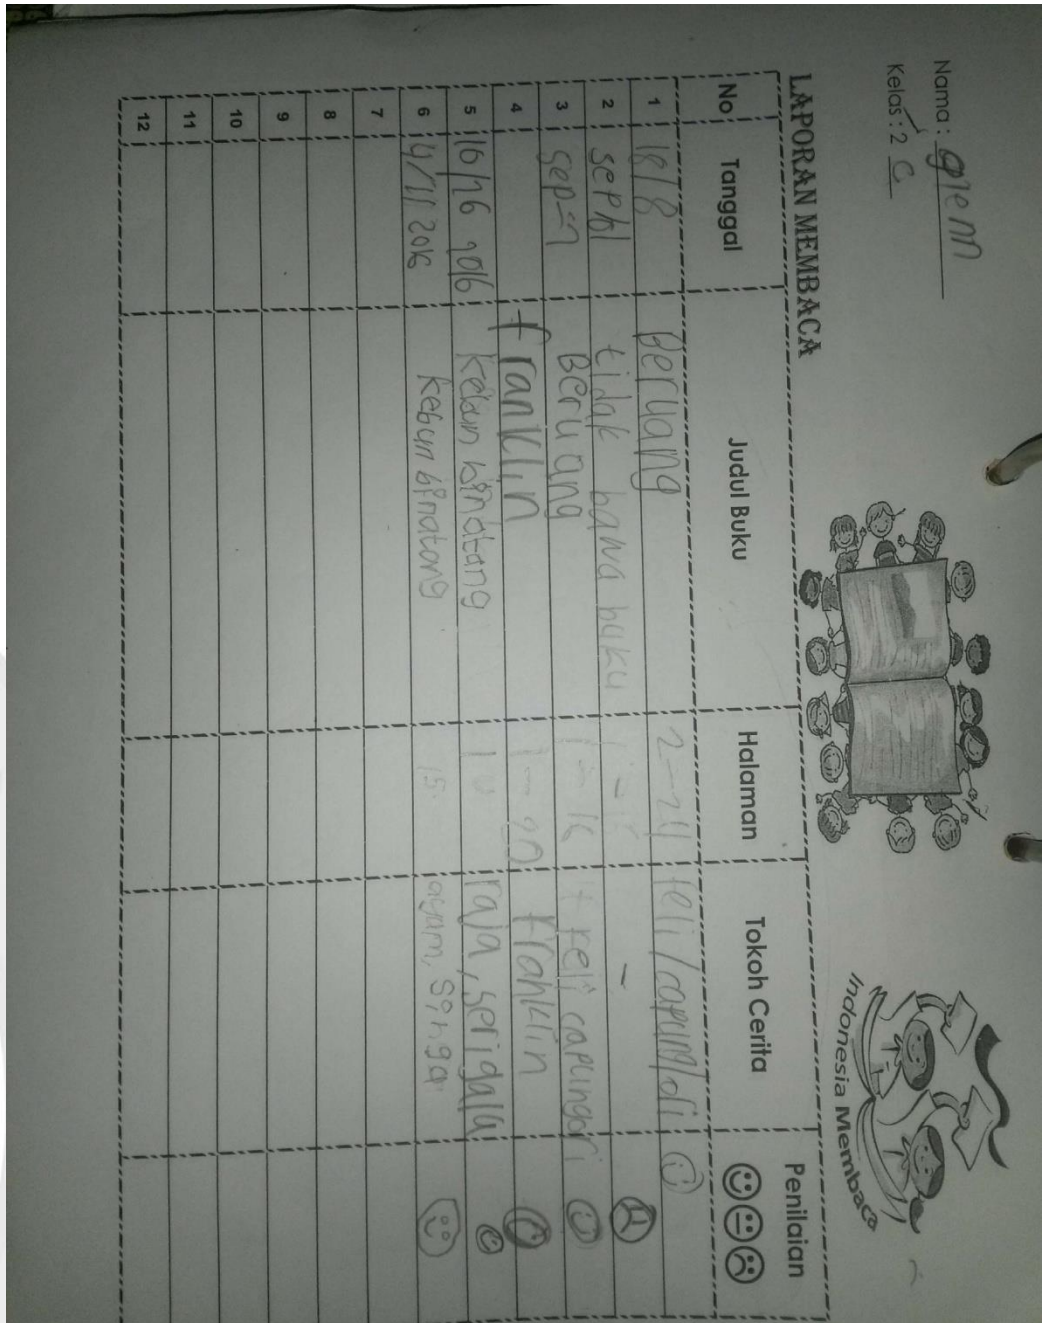 Nama : Glenn
Kelas : 2 C
Indonesia Membaca
LAPORAN MEMBACA
No Tanggal Judul Buku Halaman Tokoh Cerita Penilaian
1 18/8 Beruang 2-24 feli /capung/ori
2 tidak bawa buku - -
3 Beruang feli capungori
4 franklin franklin
5 kebun binatang raja, serigala
6 4/11 2016 kebun binatang 15 ayam, singa
7
8
9
10
11
12